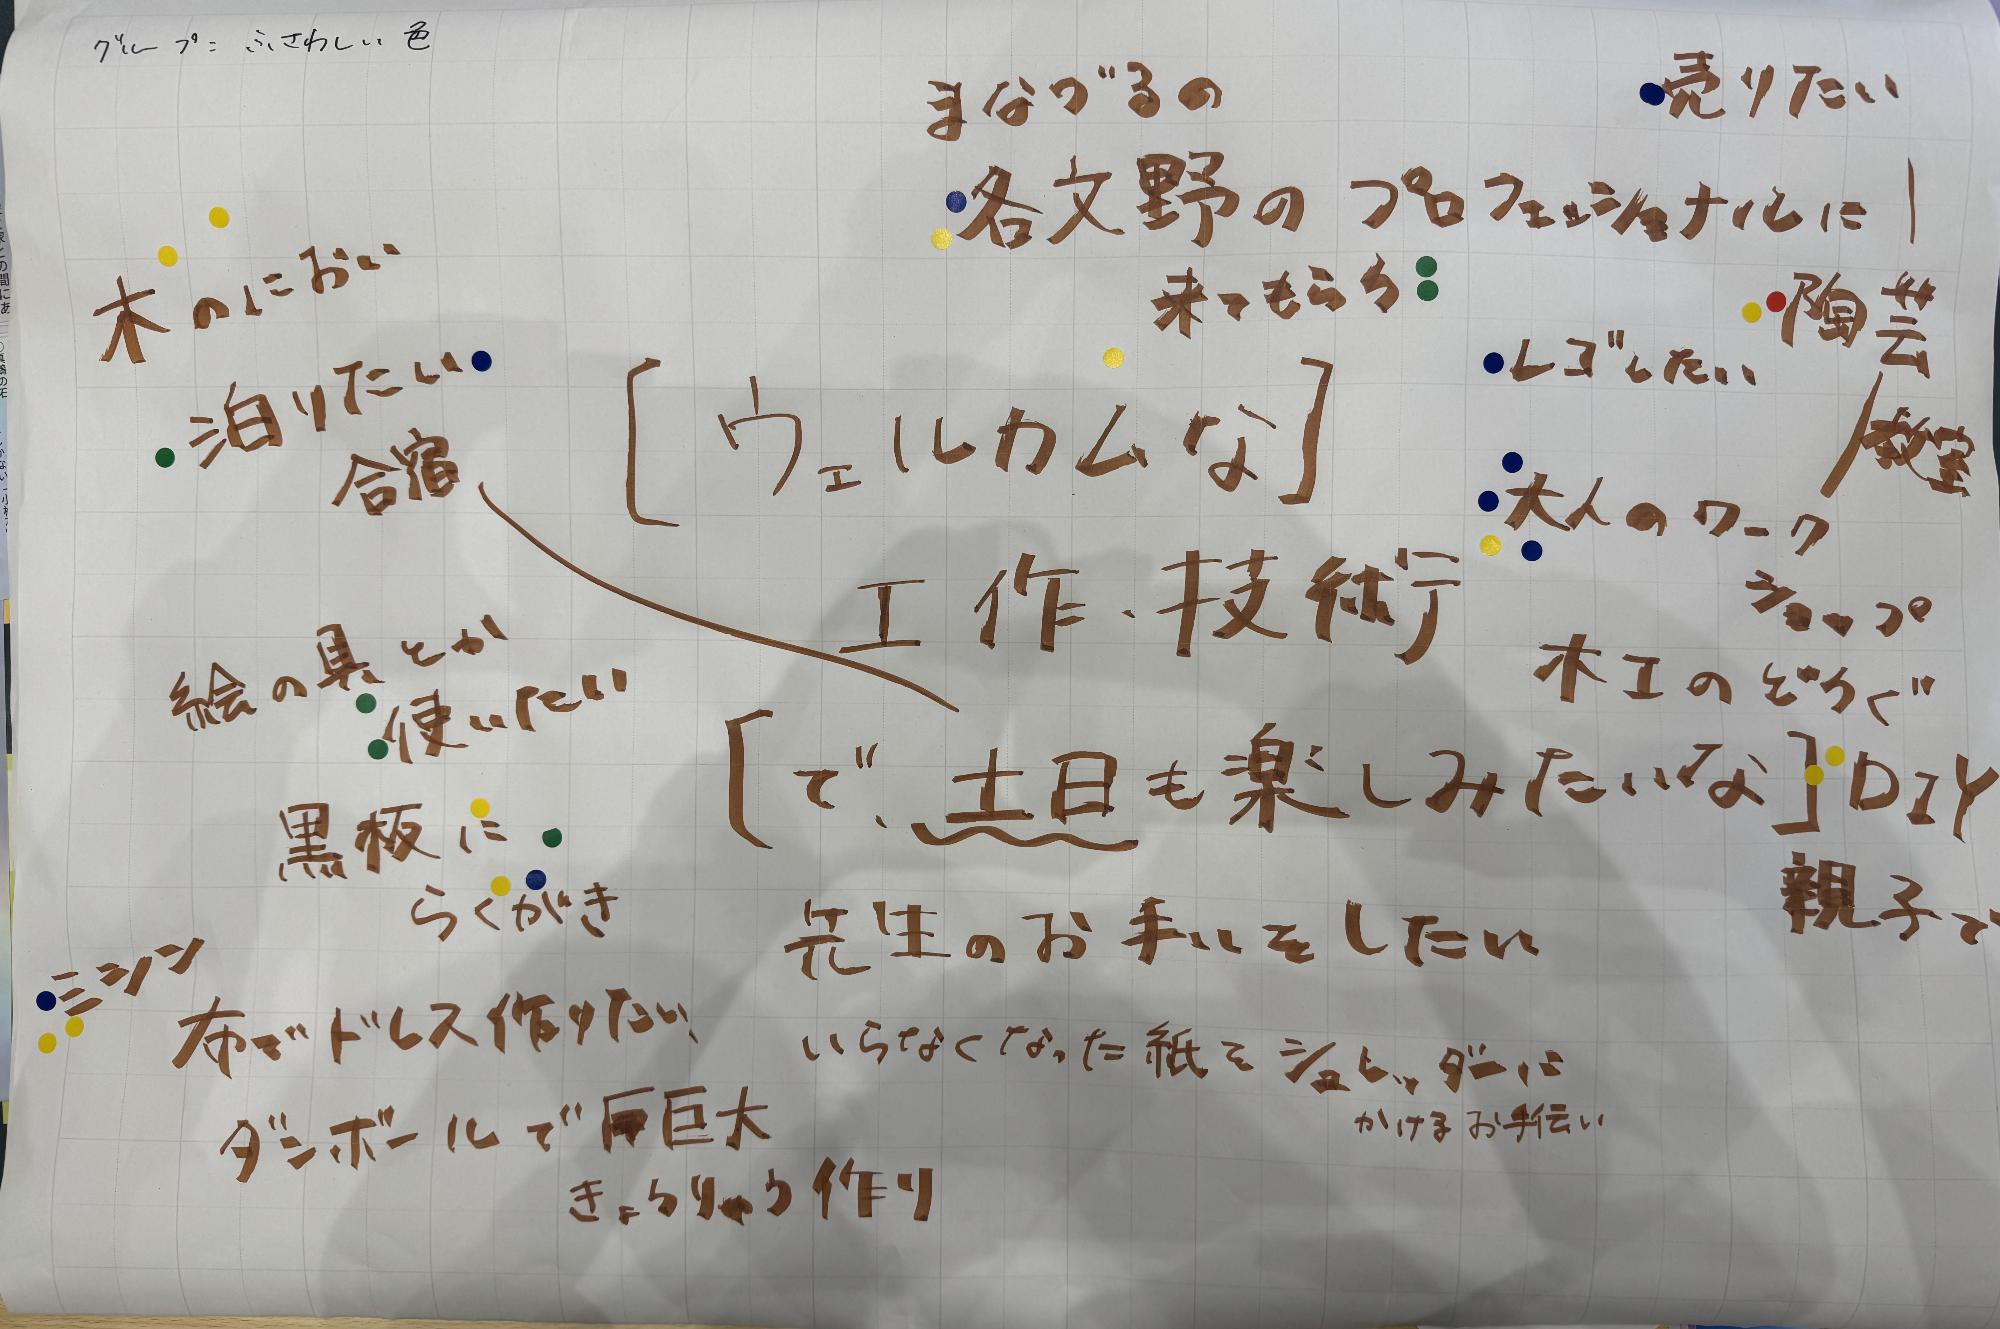 グループ：ふさわしい色
まなづるの
売りたい
各文野のプロフェッショナルに
来てもらう
木のにおい
泊りたい
合宿
陶芸
教室
レゴしたい
[ウェルカムな]
大人のワーク
ショップ
工作・技術
木工のぞうぐ
絵の具とか
使いたい
[で、土日も楽しみたいな]
DIY
親子で
黒板に
らくがき
先生のお手いをしたい
ミシン
布でドレス作りたい
いらなくなった紙をシュレッダーに
かけるお手伝い
ダンボールで巨大
きょうりゅう作り